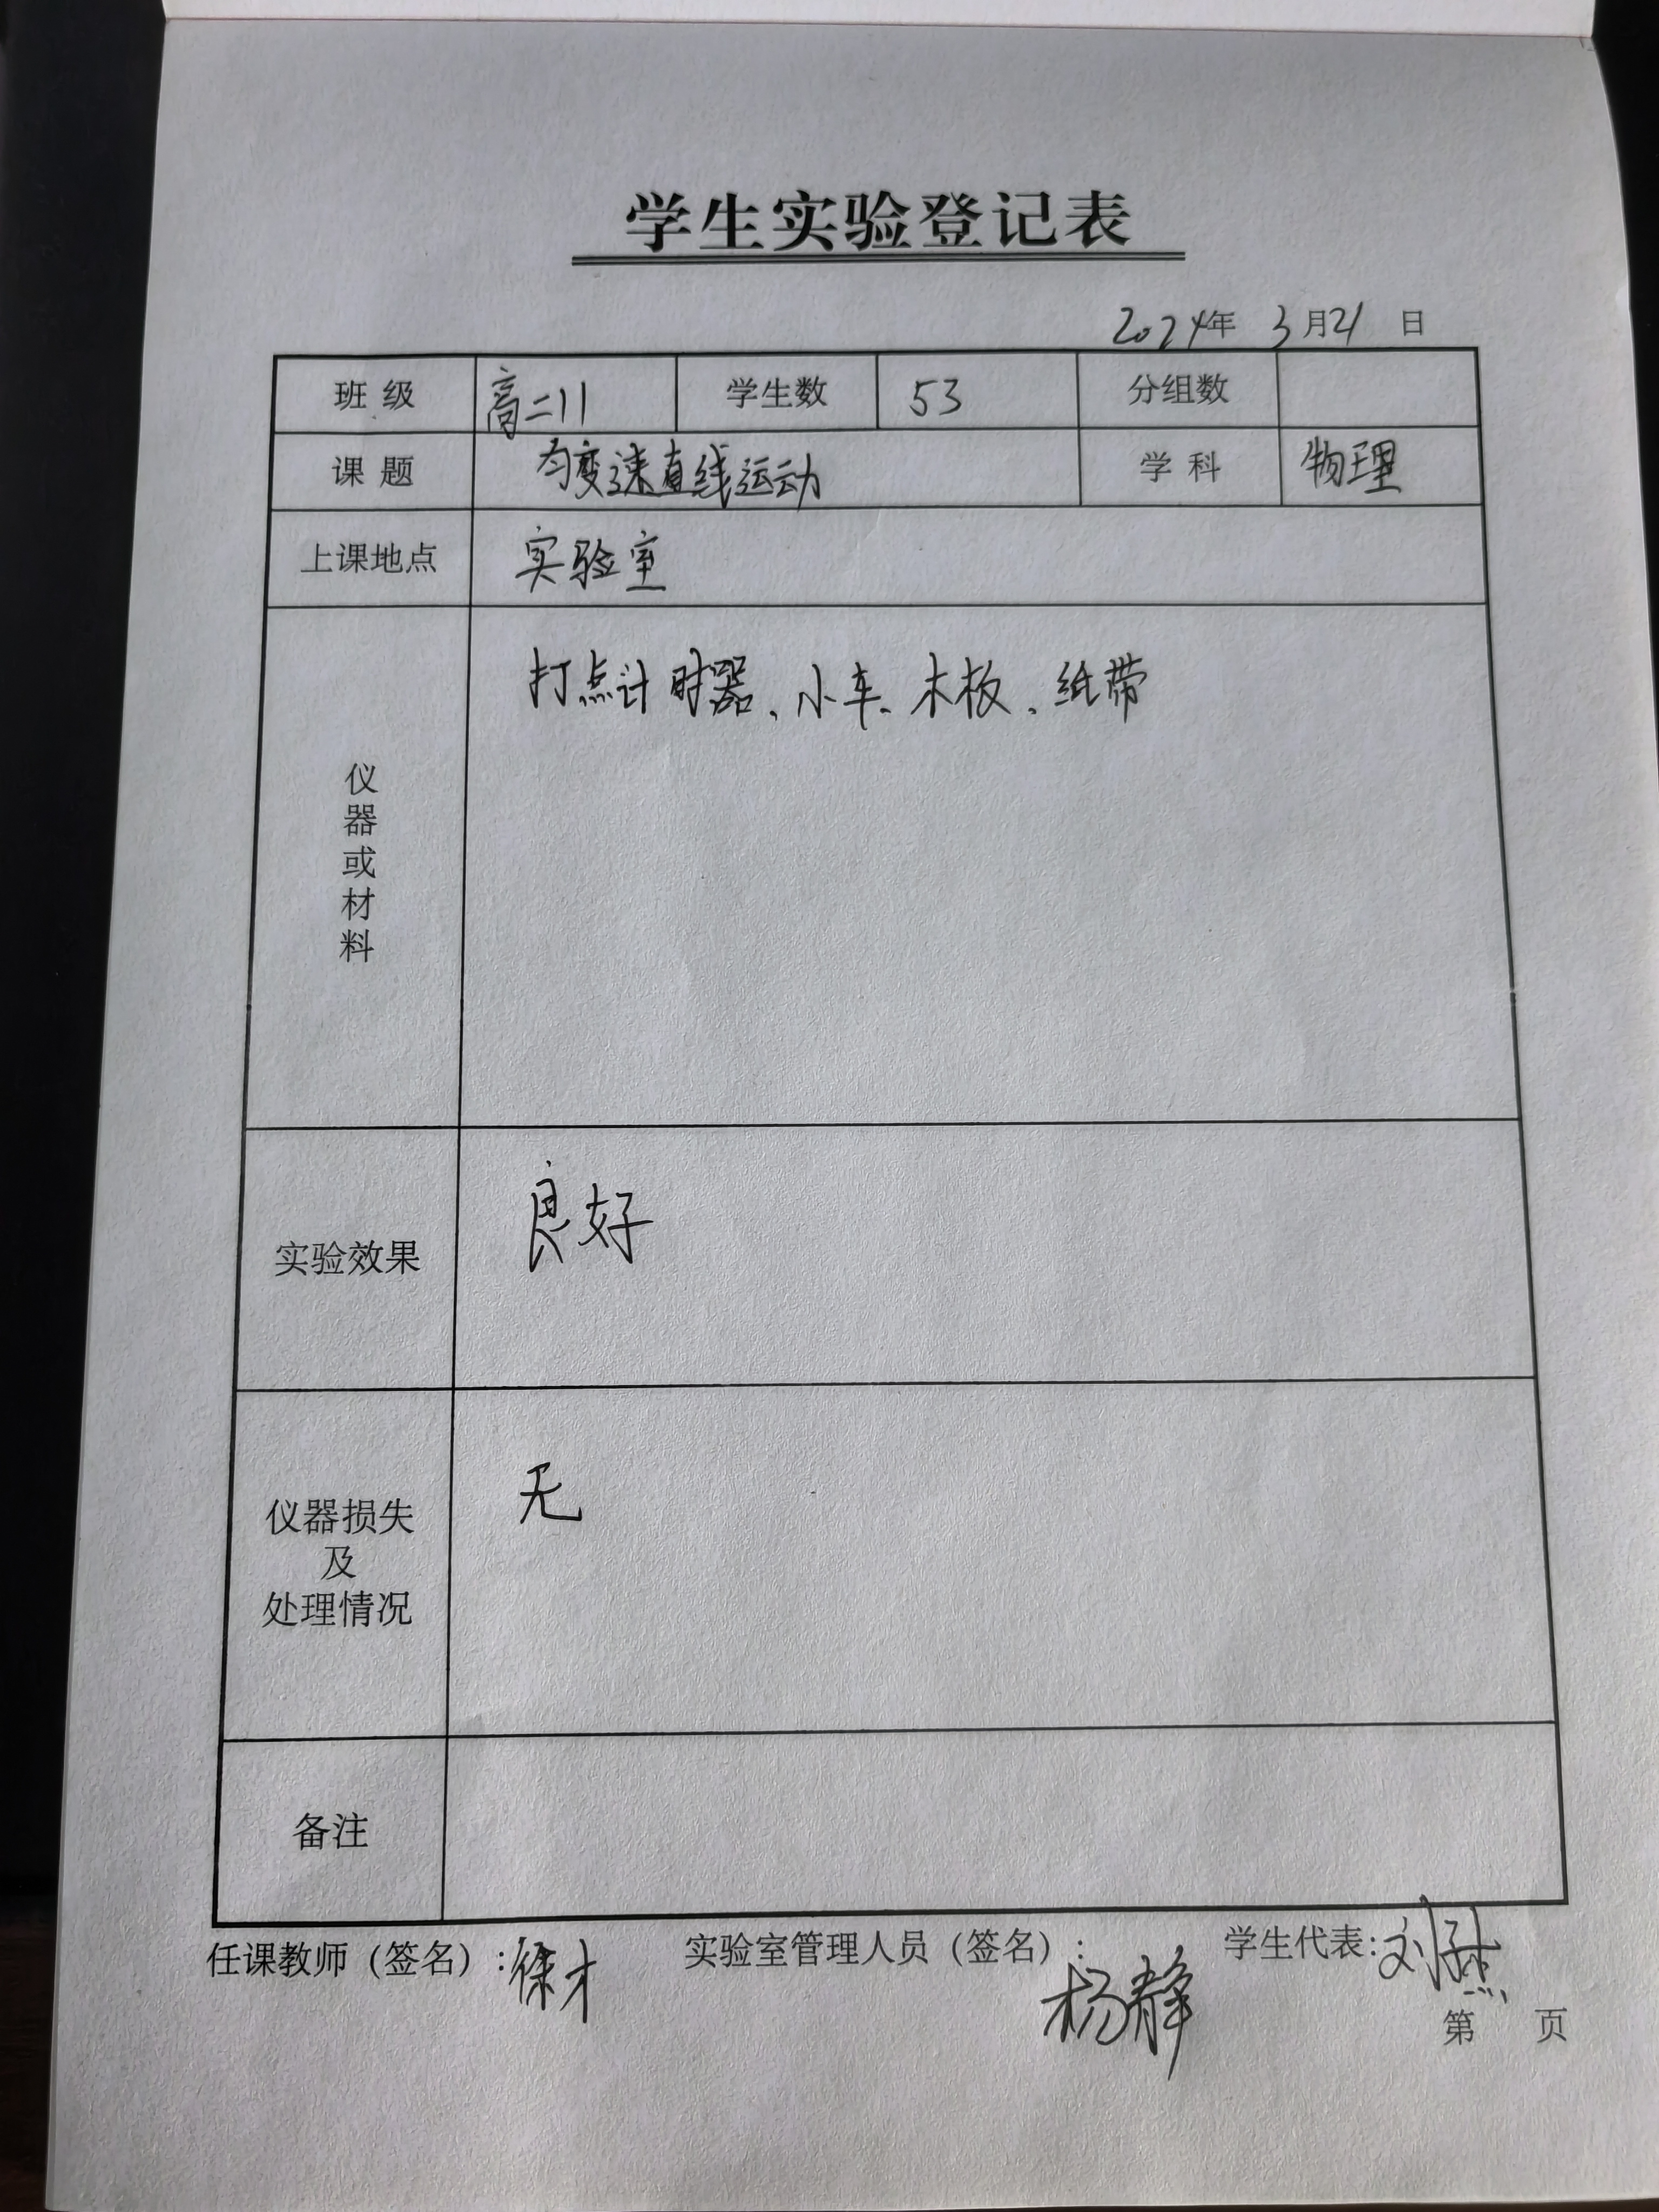 学生实验登记表
2024年 3月21 日
班 级 高二11 学生数 53 分组数
课 题 匀变速直线运动 学 科 物理
上课地点 实验室
仪器或材料 打点计时器、小车、木板、纸带
实验效果 良好
仪器损失
及
处理情况
无
备注
任课教师（签名）:徐才 实验室管理人员（签名）: 杨静 学生代表:刘
第 页